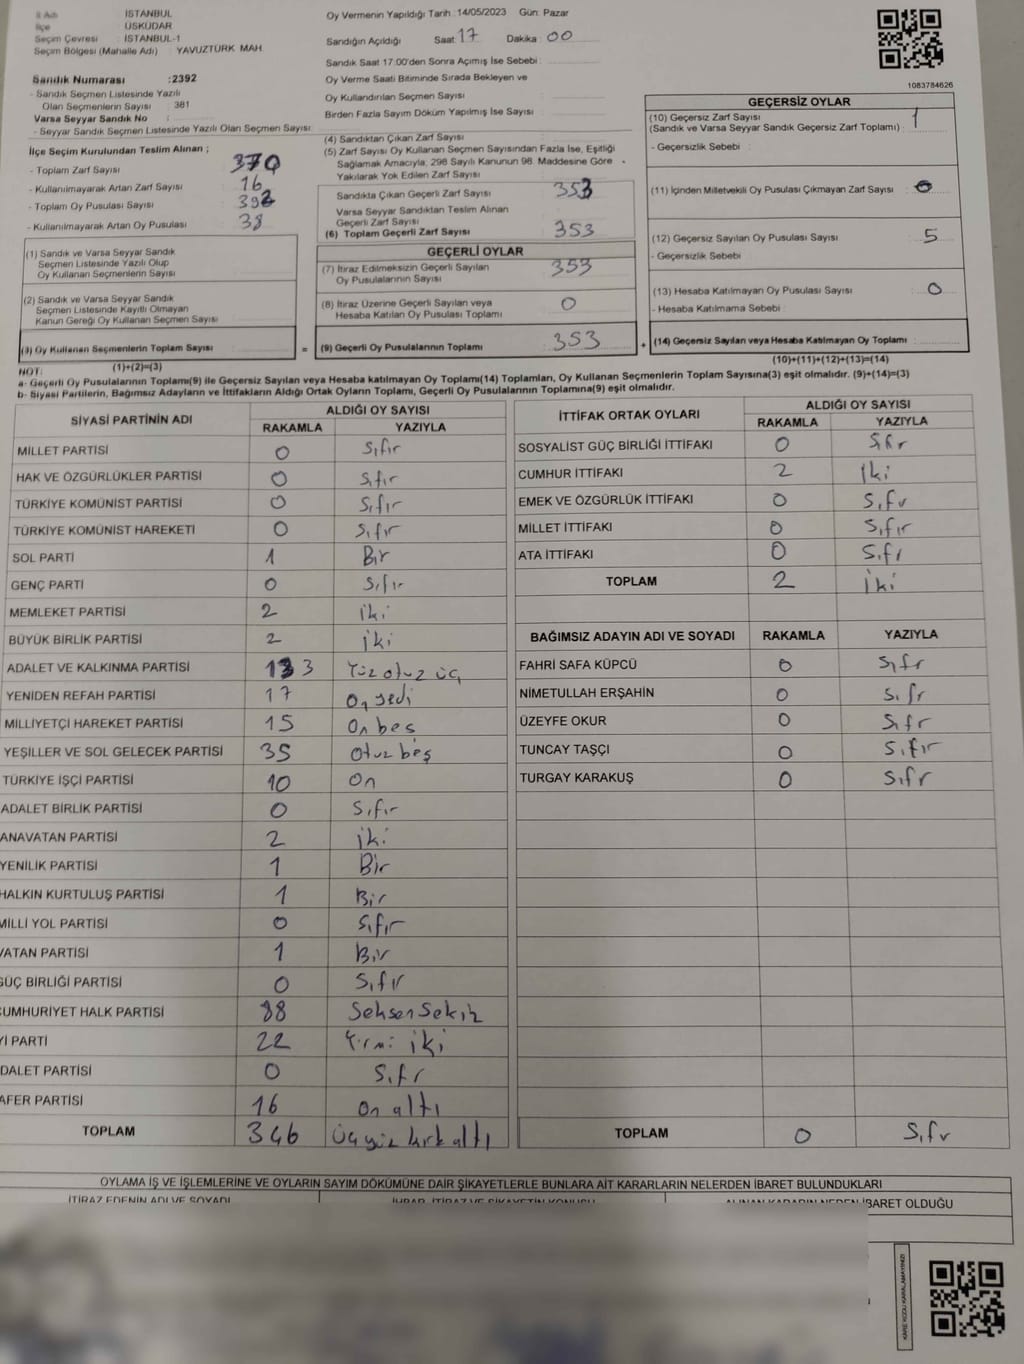 İli Adı : İSTANBUL
İlçe : ÜSKÜDAR
Seçim Çevresi : İSTANBUL-1
Seçim Bölgesi (Mahalle Adı) : YAVUZTÜRK MAH.
Sandık Numarası :2392
- Sandık Seçmen Listesinde Yazılı
Olan Seçmenlerin Sayısı : 381
Varsa Seyyar Sandık No :
- Seyyar Sandık Seçmen Listesinde Yazılı Olan Seçmen Sayısı:
İlçe Seçim Kurulundan Teslim Alınan ;
- Toplam Zarf Sayısı 370
- Kullanılmayarak Artan Zarf Sayısı 16
- Toplam Oy Pusulası Sayısı 392
- Kullanılmayarak Artan Oy Pusulası 38
(1) Sandık ve Varsa Seyyar Sandık
Seçmen Listesinde Yazılı Olup
Oy Kullanan Seçmenlerin Sayısı
(2) Sandık ve Varsa Seyyar Sandık
Seçmen Listesinde Kayıtlı Olmayan
Kanun Gereği Oy Kullanan Seçmen Sayısı
(3) Oy Kullanan Seçmenlerin Toplam Sayısı
Oy Vermenin Yapıldığı Tarih :14/05/2023 Gün: Pazar
Sandığın Açıldığı Saat: 17 Dakika : 00
Sandık Saat 17:00'den Sonra Açımış İse Sebebi :
Oy Verme Saati Bitiminde Sırada Bekleyen ve
Oy Kullandırılan Seçmen Sayısı
Birden Fazla Sayım Döküm Yapılmış İse Sayısı :
(4) Sandıktan Çıkan Zarf Sayısı
(5) Zarf Sayısı Oy Kullanan Seçmen Sayısından Fazla İse, Eşitliği
Sağlamak Amacıyla; 298 Sayılı Kanunun 98. Maddesine Göre
Yakılarak Yok Edilen Zarf Sayısı
Sandıkta Çıkan Geçerli Zarf Sayısı 353
Varsa Seyyar Sandıktan Teslim Alınan
Geçerli Zarf Sayısı
(6) Toplam Geçerli Zarf Sayısı 353
GEÇERLİ OYLAR
(7) İtiraz Edilmeksizin Geçerli Sayılan
Oy Pusulalarının Sayısı 353
(8) İtiraz Üzerine Geçerli Sayılan veya
Hesaba Katılan Oy Pusulası Toplamı 0
= (9) Geçerli Oy Pusulalarının Toplamı 353 +
1083784626
GEÇERSİZ OYLAR
(10) Geçersiz Zarf Sayısı
(Sandık ve Varsa Seyyar Sandık Geçersiz Zarf Toplamı) : 1
- Geçersizlik Sebebi :
(11) İçinden Milletvekili Oy Pusulası Çıkmayan Zarf Sayısı : 0
(12) Geçersiz Sayılan Oy Pusulası Sayısı 5
- Geçersizlik Sebebi
(13) Hesaba Katılmayan Oy Pusulası Sayısı 0
- Hesaba Katılmama Sebebi :
(14) Geçersiz Sayılan veya Hesaba Katılmayan Oy Toplamı :
NOT: (1)+(2)=(3) (10)+(11)+(12)+(13)=(14)
a- Geçerli Oy Pusulalarının Toplamı(9) ile Geçersiz Sayılan veya Hesaba katılmayan Oy Toplamı(14) Toplamları, Oy Kullanan Seçmenlerin Toplam Sayısına(3) eşit olmalıdır. (9)+(14)=(3)
b- Siyasi Partilerin, Bağımsız Adayların ve İttifakların Aldığı Ortak Oyların Toplamı, Geçerli Oy Pusulalarının Toplamına(9) eşit olmalıdır.
SİYASİ PARTİNİN ADI ALDIĞI OY SAYISI
RAKAMLA YAZIYLA
MİLLET PARTİSİ 0 Sıfır
HAK VE ÖZGÜRLÜKLER PARTİSİ 0 Sıfır
TÜRKİYE KOMÜNİST PARTİSİ 0 Sıfır
TÜRKİYE KOMÜNİST HAREKETİ 0 Sıfır
SOL PARTİ 1 Bir
GENÇ PARTİ 0 Sıfır
MEMLEKET PARTİSİ 2 iki
BÜYÜK BİRLİK PARTİSİ 2 iki
ADALET VE KALKINMA PARTİSİ 133 Yüz otuz üç
YENİDEN REFAH PARTİSİ 17 On yedi
MİLLİYETÇİ HAREKET PARTİSİ 15 On beş
YEŞİLLER VE SOL GELECEK PARTİSİ 35 Otuz beş
TÜRKİYE İŞÇİ PARTİSİ 10 On
ADALET BİRLİK PARTİSİ 0 Sıfır
ANAVATAN PARTİSİ 2 iki
YENİLİK PARTİSİ 1 Bir
HALKIN KURTULUŞ PARTİSİ 1 Bir
MİLLİ YOL PARTİSİ 0 Sıfır
VATAN PARTİSİ 1 Bir
GÜÇ BİRLİĞİ PARTİSİ 0 Sıfır
CUMHURİYET HALK PARTİSİ 88 Seksen Sekiz
Yİ PARTİ 22 Yirmi iki
DALET PARTİSİ 0 Sıfr
AFER PARTİSİ 16 On altı
TOPLAM 346 Üçyüz kırk altı
İTTİFAK ORTAK OYLARI ALDIĞI OY SAYISI
RAKAMLA YAZIYLA
SOSYALİST GÜÇ BİRLİĞİ İTTİFAKI 0 Sıfır
CUMHUR İTTİFAKI 2 İki
EMEK VE ÖZGÜRLÜK İTTİFAKI 0 Sıfır
MİLLET İTTİFAKI 0 Sıfır
ATA İTTİFAKI 0 Sıfr
TOPLAM 2 iki
BAĞIMSIZ ADAYIN ADI VE SOYADI RAKAMLA YAZIYLA
FAHRİ SAFA KÜPCÜ 0 Sıfr
NİMETULLAH ERŞAHİN 0 Sıfr
ÜZEYFE OKUR 0 Sıfr
TUNCAY TAŞÇI 0 Sıfır
TURGAY KARAKUŞ 0 Sıfr
TOPLAM 0 Sıfr
OYLAMA İŞ VE İŞLEMLERİNE VE OYLARIN SAYIM DÖKÜMÜNE DAİR ŞİKAYETLERLE BUNLARA AİT KARARLARIN NELERDEN İBARET BULUNDUKLARI
İTİRAZ EDENİN ADI VE SOYADI İHBAR, İTİRAZ VE ŞİKAYETİN KONUSU ALINAN KARARIN NEDEN İBARET OLDUĞU
KARE KODU KARALAMAYINIZ!